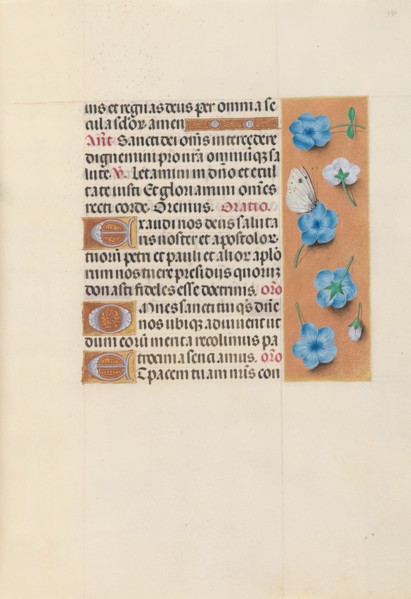 uis et regnas deus per omnia se
cula sclor. amen
Ant. Sancti dei oms intercedere
dignemini pro nra omniuqz sa
lute. V. Letamini in dno et exul
tate iusti. Et gloriamini omes
recti corde. Oremus. Oratio.
Exaudi nos deus saluta
ris noster et apostolor.
tuorum petri et pauli et alior. aplo
rum nos tuere presidiis quoruz
donasti fideles esse doctrinis. oro
Omnes sancti tui qs dne
nos ubiqz adiuuent ut
dum eoru merita recolimus pa
trocinia senciamus. oro
Et pacem tuam nris con